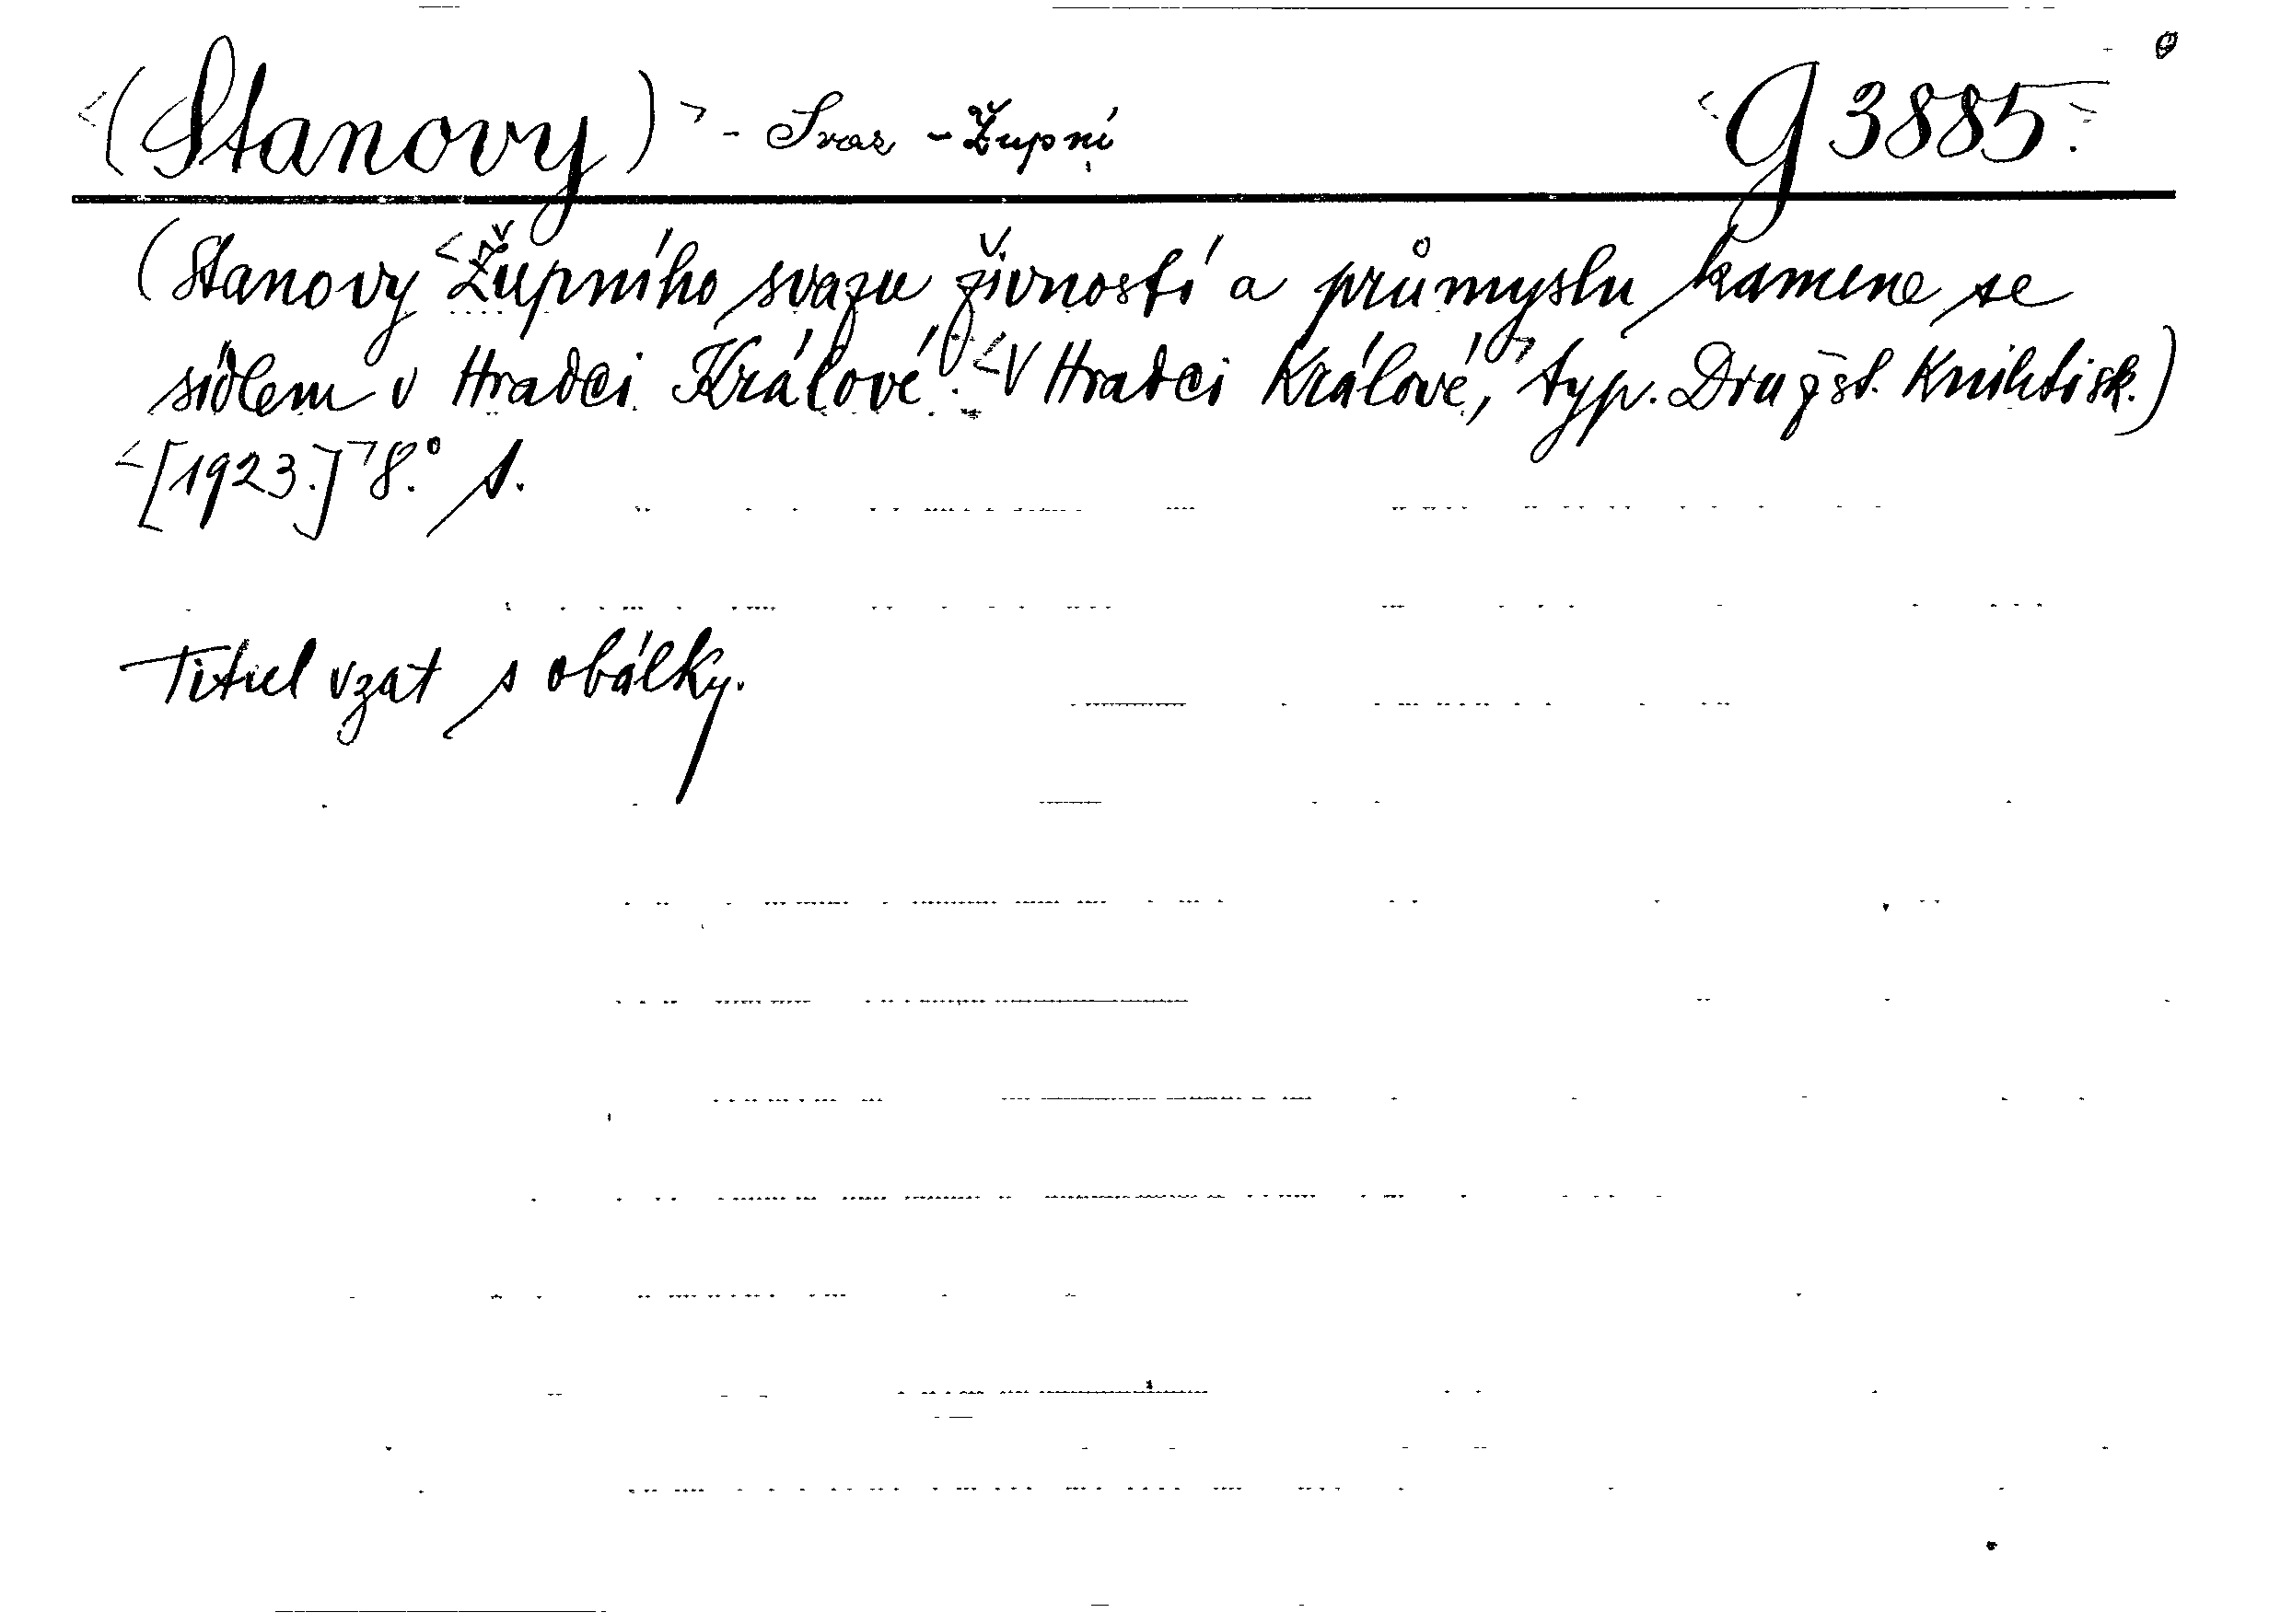 (Stanovy) - Svaz - Župní G 3885.
(Stanovy Župního svazu živností a průmyslu kamene se
sídlem v Hradci Králové. V Hradci Králové, typ. Družst. Knihtisk.)
[1923.] 8.° s.
Titul vzat s obálky.